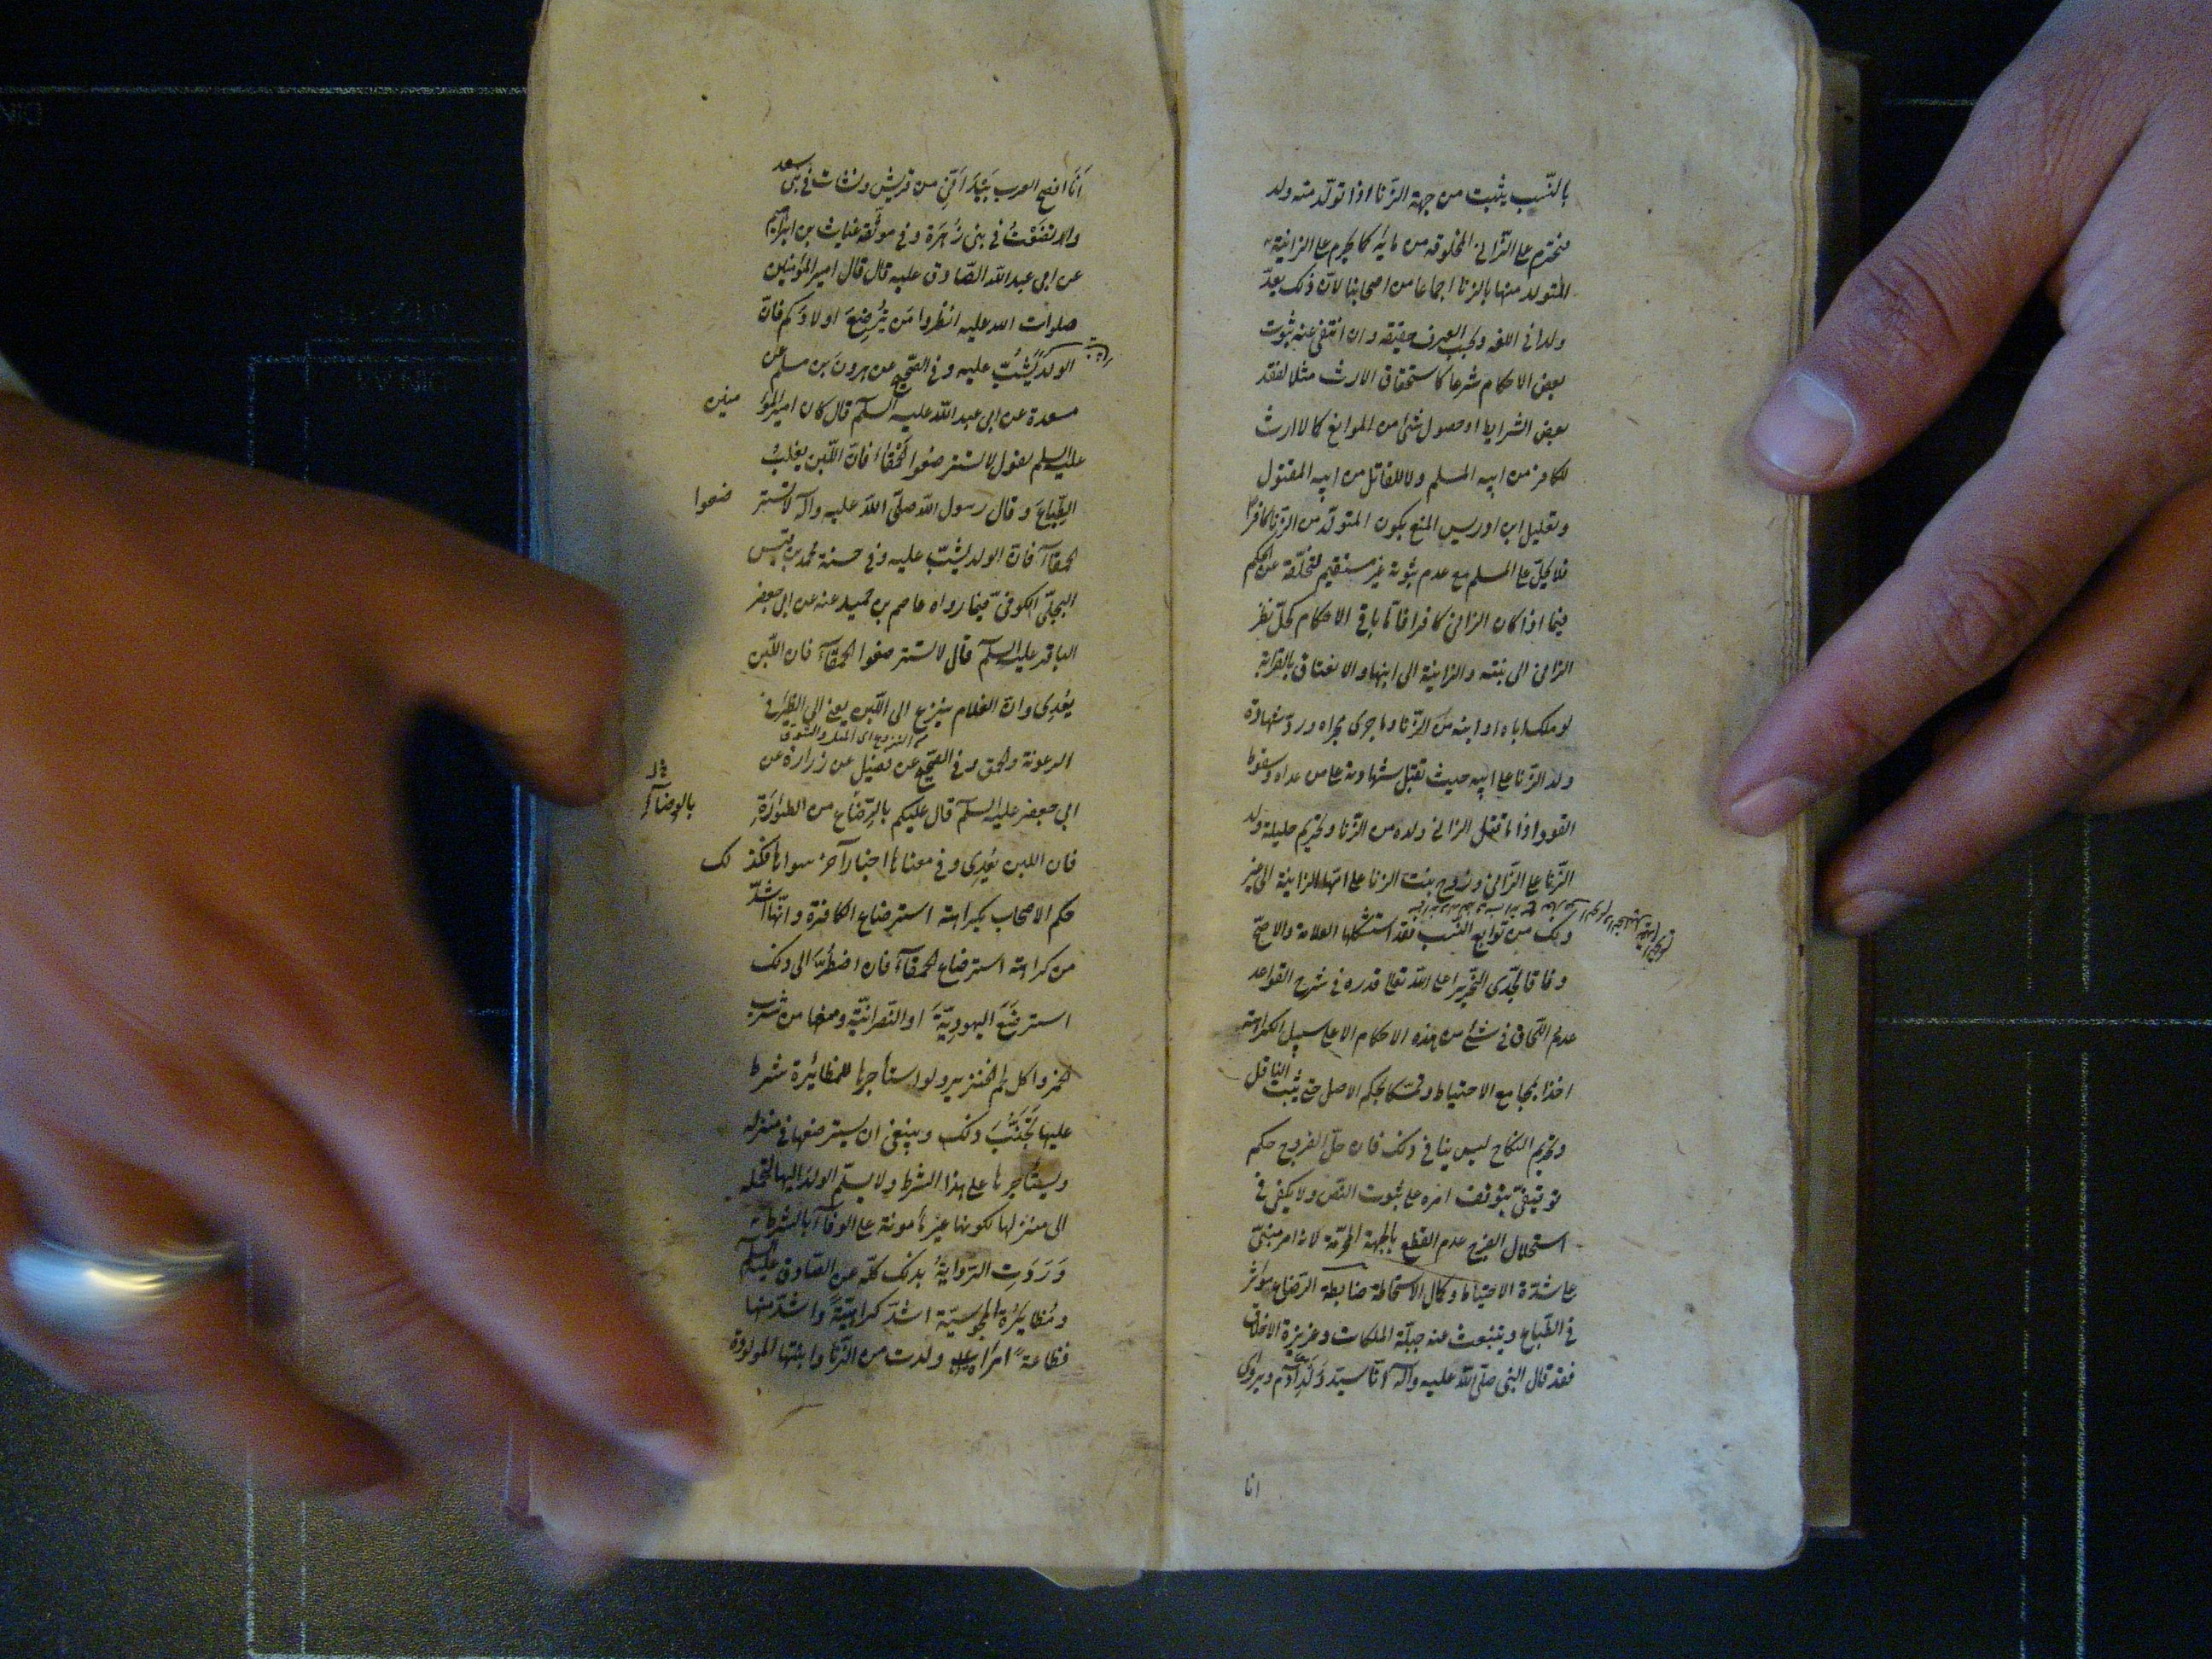 بالنّسب يثبت من جهة الزّنا اذا تولّد منه ولد
فتحرم على الزّانى المخلوقة من مائه كما يحرم على الزانية
المتولد منها بالزنا اجماعا من اصحابنا لانّ ذلك يعدّ
ولدا فى اللغة وبحسب العرف حقيقة وان انتفى عنه ثبوت
بعض الاحكام شرعا كاستحقاق الارث مثلا لفقد
بعض الشرايط او حصول شئ من الموانع كما لا ارث
للكافر من ابيه المسلم ولا للقاتل من ابيه المقتول
وتعليل ابن ادريس المنع بكون المتولّد من الزّنا كافرا
فلا يحلّ على المسلم مع عدم ثبوته غير مستقيم لتخلّفه عن الحكم
فيما اذا كان الزانى كافرا فامّا باقى الاحكام كحلّ نظر
الزانى الى بنته والزانية الى ابنها والانعتاق بالقرابة
لو ملك اباه او ابنه من الزّنا وما جرى مجراه وردّ شهادة
ولد الزّنا على ابيه حيث تقبل شهادته على من عداه وسقوط
القود اذا ما قتل الزانى ولده من الزّنا وتحريم حليلة ولد
الزّنا على الزّانى وزوج بنت الزنا على امّها الزانية الى غير
ذلك من توابع النّسب فقد استشكلها العلامة والاصحّ
وفاقا لجدّى النّحرير اعلى الله تعالى قدره فى شرح القواعد
عدم اللّحاق فى شئ من هذه الاحكام الا على سبيل الكراهة
اخذا بمجامع الاحتياط وتمسّكا بحكم الاصل حتى يثبت الناقل
وتحريم النكاح ليس ينافى ذلك فان حلّ الفروج حكم
توقيفىّ يتوقف امره على ثبوت النّص ولا يكفى فى
استحلال الفرج عدم القطع بالجهة المحرّمة لانه امر مبنىّ
على شدّة الاحتياط وكمال الاستحاطة ضابطة الرّضاع مؤثر
فى الطّباع وينبعث عنه جبلّة الملكات وغريزة الاخلاق
فقد قال النبى صلّى الله عليه وآله انا سيّد وُلد آدم ويروى
انا
اَنَا افصح العرب بَيْدَ اَنّى من قريش ونشات فى بنى سعد
وارتضعتُ فى بنى زُهرَة وفى موثّقة غياث بن ابراهيم
عن ابى عبد الله الصّادق عليه قال قال امير المؤمنين
صلوات الله عليه انظروا مَن يُرضِعَ اولادكم فانّ
الولد يُشبّ عليه وفى الصّحيح عن هرون بن مسلم عن
مسعدة عن ابى عبد الله عليه السلم قال كان امير المؤمنين
عليه السلم يقول لا تسترضعوا الحَمْقاءَ فانّ اللّبن يغلبُ
الطِّباعَ وقال رسول الله صلّى الله عليه وآله لا تسترضعوا
الحمقآءَ فانّ الولد يشبّ عليه وفى حسنة محمد بن قيس
البجلىّ الكوفىّ فيما رواه عاصم بن حميد عنه عن ابى جعفر
الباقر عليه السلم قال لا تسترضعوا الحمقآءَ فان اللّبن
يُعدِى وانّ الغلام ينزع الى اللّبن يعنى الى الظِئر فى
من النزوع اى الميل والشوق
الرعونة والحمق وفى الصّحيح عن فضيل عن زرارة عن
ابى جعفر عليه السلم قال عليكم بالرّضاع من الظئورَةِ
فان اللبن يُعدِى وفى معناها اخبار آخر سواها فكذلك
حكم الاصحاب بكراهة استرضاع الكافرة وانّها اشدّ
من كراهة استرضاع الحمقآءَ فان اضطُرّ الى ذلك
استرضَعَ اليهوديّةَ او النّصرانيّة ومنعها من شرب
الخمر واكل لحم الخنزير ولو استاجرها للمظائرة شرط
عليها تَجَنُّبَ ذلك وينبغى ان يسترضعها فى منزله
ويستأجرها على هذا الشرط ولا يسلّم الولد اليها لتحمله
الى منزلها لكونها غير مأمونة على الوفآء بالشرط
وَرَدَتِ الرّوايةُ بذلك كلّه عن الصّادق عليه السلم
ومُظايَرَةُ المجوسيّة اشدّ كراهيّةً واشدّ منها
فظاعةً امراة ولدت من الزّنا وابنتها المولودة